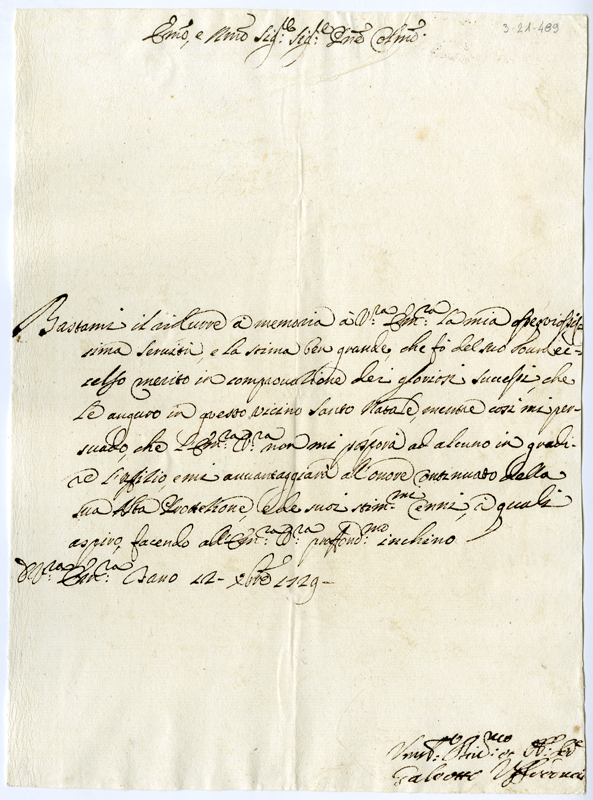 3-21-489
Em̃o, e Rm̃o Sig.re Sig.re Pñe Colmo.
Bastami il ridurre à memoria à V.ra Em.ra la mia
sima servitù, e la stima ben grande, che fò del suo ben ec=
celso merito in comprouatione dei gloriosi successi, che
Le auguro in questo vicino Santo Natale, mentre così mi per-
suado, che l'Em.ra V.ra non mi posporrà ad alcuno in gradi-
re l'offitio, e mi auuantaggiarà all'onore continuato della
sua Alta Protettione, e de suoi stim.mi cenni, à quali
aspiro, facendo all'Em.ra V.ra profond.mo inchino
D V.ra Em.ra Fano 12 Xbre 1729
Um.mo Diu.mo et Obl.
Galeotto Ufforeducci